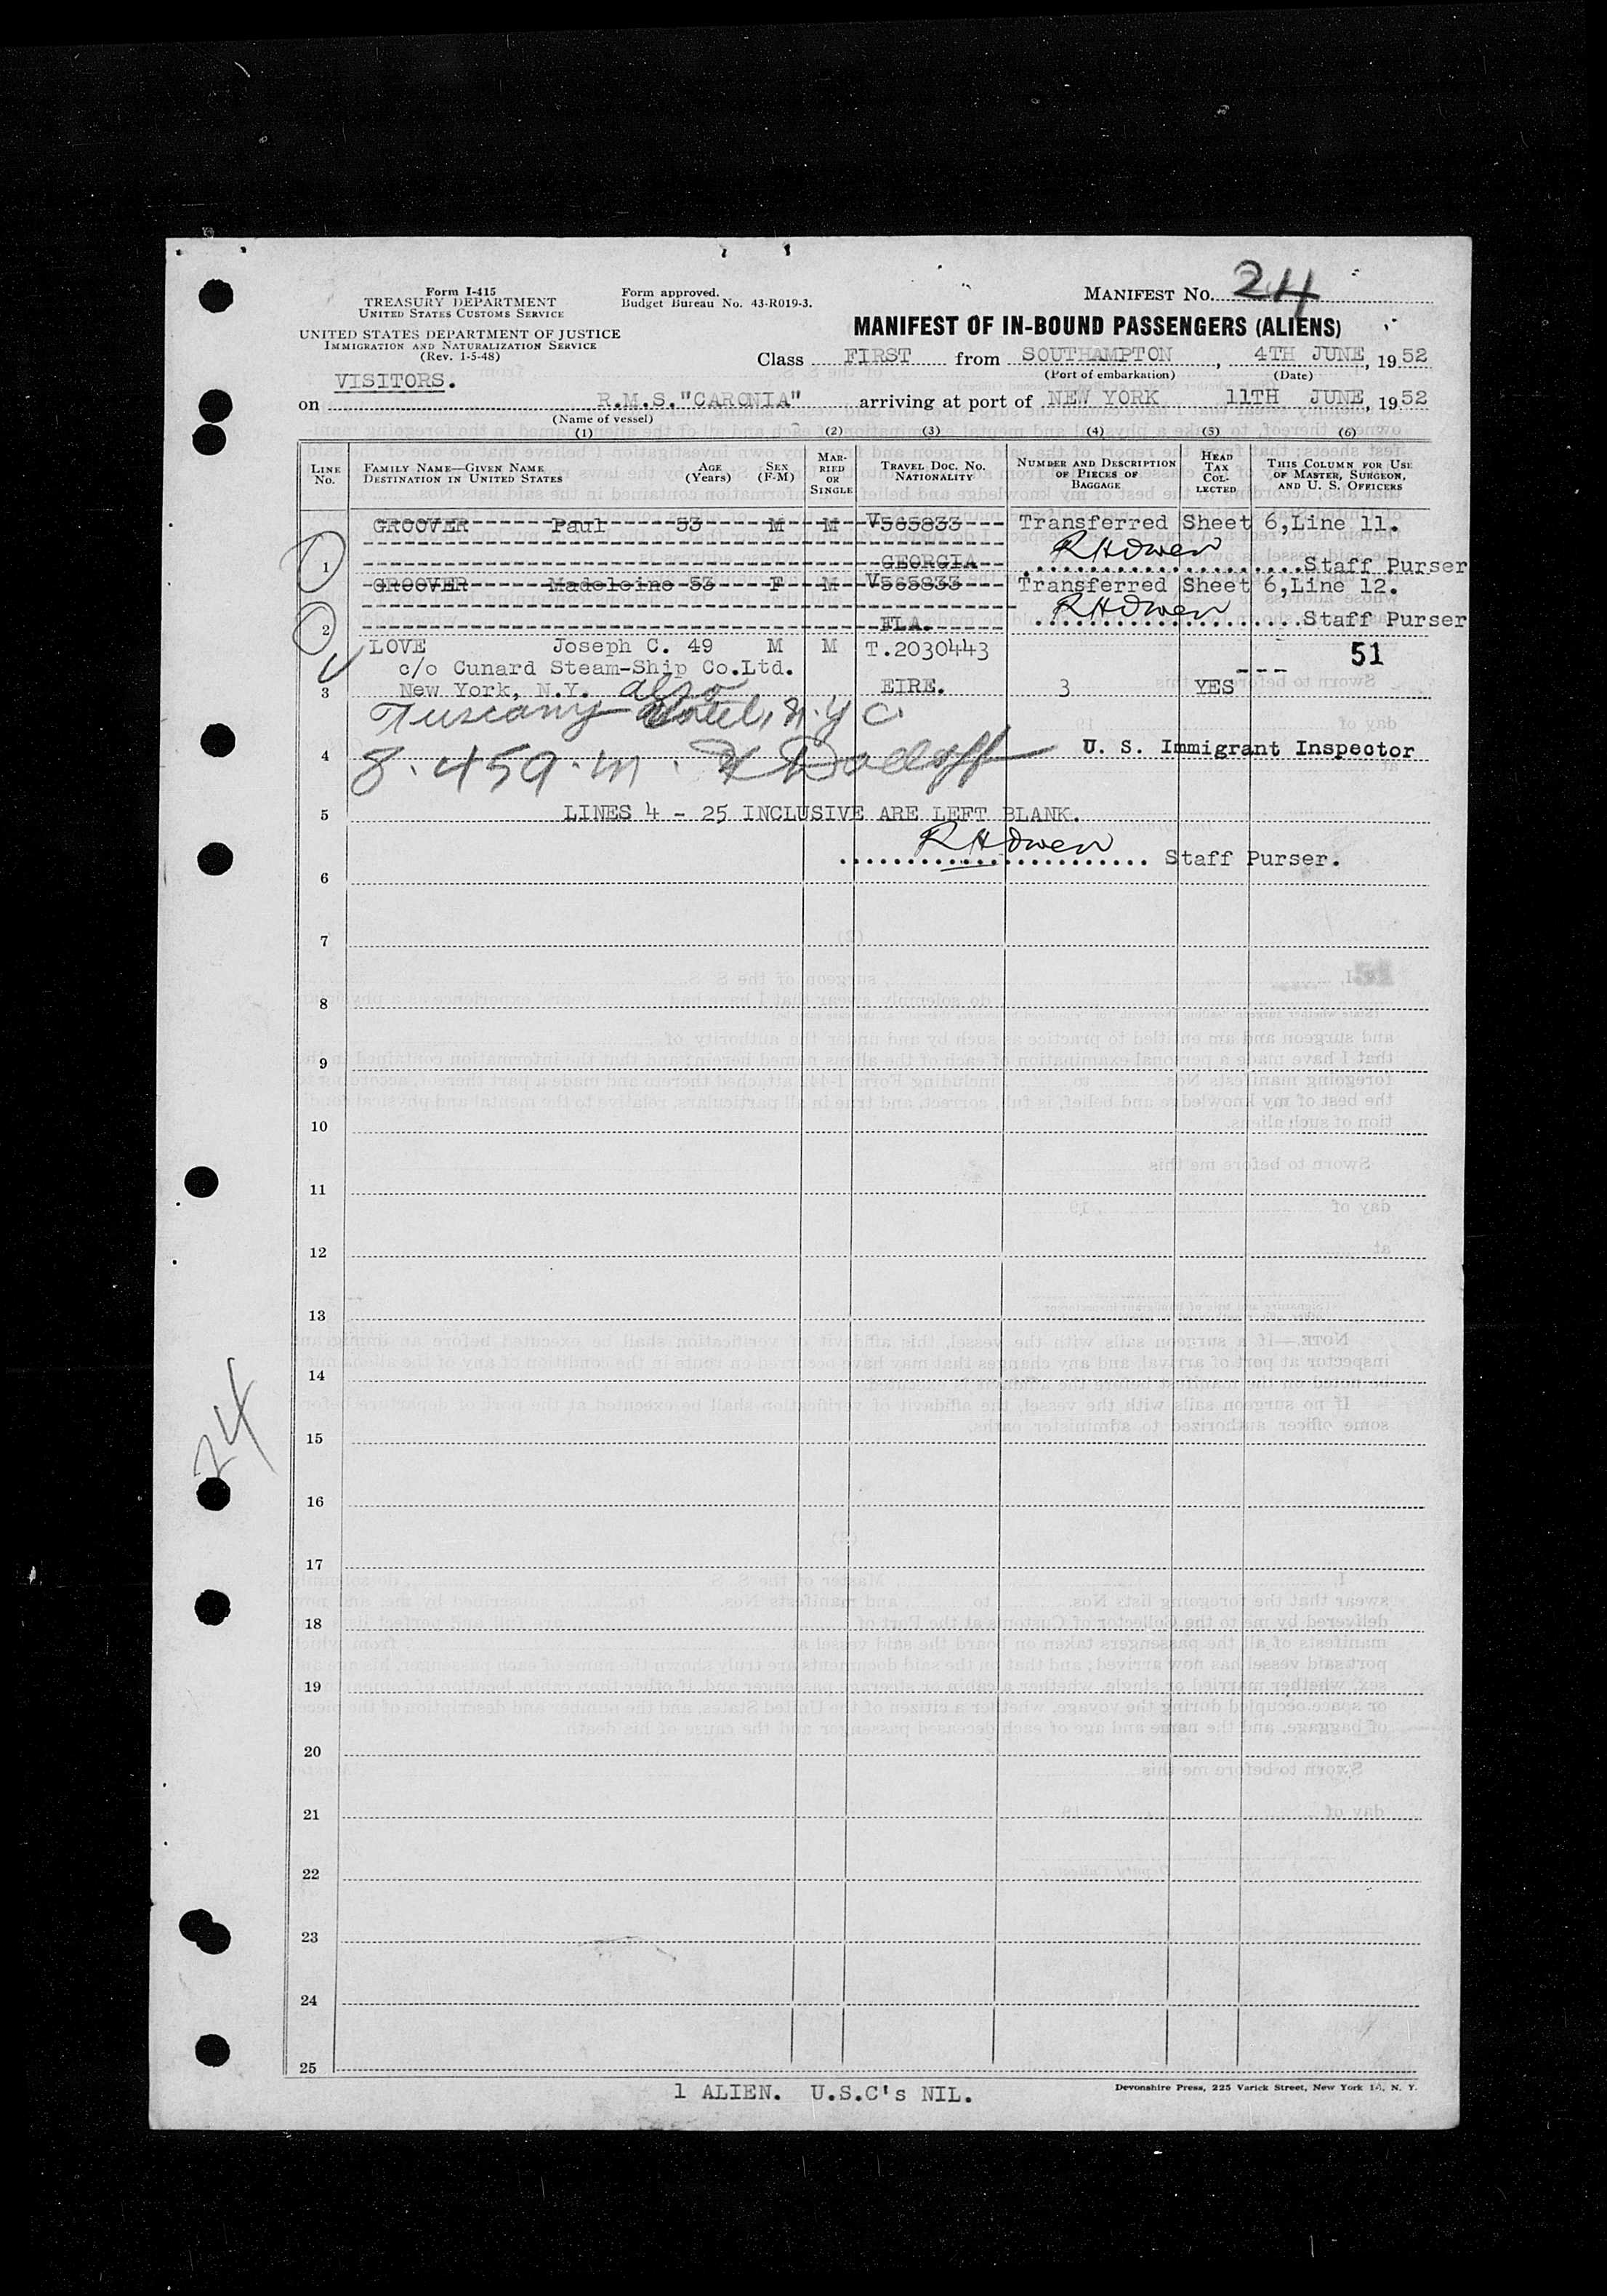 Form I-415
TREASURY DEPARTMENT
UNITED STATES CUSTOMS SERVICE
UNITED STATES DEPARTMENT OF JUSTICE
IMMIGRATION AND NATURALIZATION SERVICE
(Rev. 1-5-48)
Form approved.
Budget Bureau No. 43-R019-3.
MANIFEST No. 24
MANIFEST OF IN-BOUND PASSENGERS (ALIENS)
Class FIRST from SOUTHAMPTON, 4TH JUNE, 1952
(Port of embarkation) (Date)
VISITORS.
on R.M.S."CARONIA" arriving at port of NEW YORK 11TH JUNE, 1952
(Name of vessel)
(1) (2) (3) (4) (5) (6)
LINE No. FAMILY NAME—GIVEN NAME DESTINATION IN UNITED STATES AGE (Years) SEX (F-M) MARRIED OR SINGLE TRAVEL DOC. NO. NATIONALITY NUMBER AND DESCRIPTION OF PIECES OF BAGGAGE HEAD TAX COLLECTED THIS COLUMN FOR USE OF MASTER, SURGEON, AND U. S. OFFICERS
GROOVER Paul 53 M M V565833 Transferred Sheet 6,Line 11.
1 GEORGIA RHOwen Staff Purser
GROOVER Madeleine 53 F M V565833 Transferred Sheet 6,Line 12.
2 FLA. RHOwen Staff Purser
LOVE Joseph C. 49 M M T.2030443 --- 51
c/o Cunard Steam-Ship Co.Ltd.
3 New York, N.Y. also EIRE. 3 YES
Tuscany Hotel, N.Y C.
4 8.45a.m. U. S. Immigrant Inspector
5 LINES 4 - 25 INCLUSIVE ARE LEFT BLANK.
RHOwen Staff Purser.
6
7
8
9
10
11
12
13
14
24
15
16
17
18
19
20
21
22
23
24
25
1 ALIEN. U.S.C's NIL.
Devonshire Press, 225 Varick Street, New York 14, N. Y.